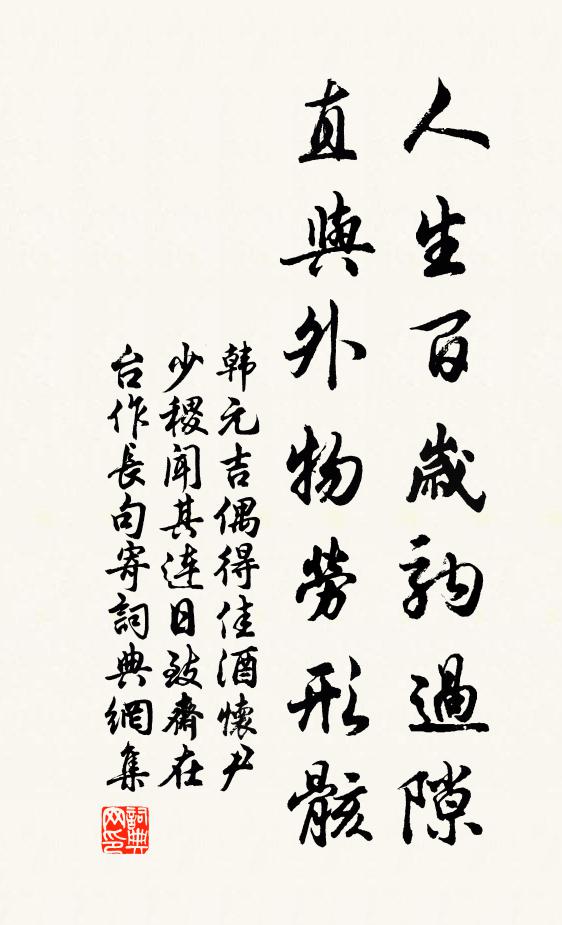 人生百歲駒過隙
直與外物勞形骸
韩元吉偶得佳酒懷尹
少稷闻其連日致齋在
台作長句寄詞典網集
詞典
网印